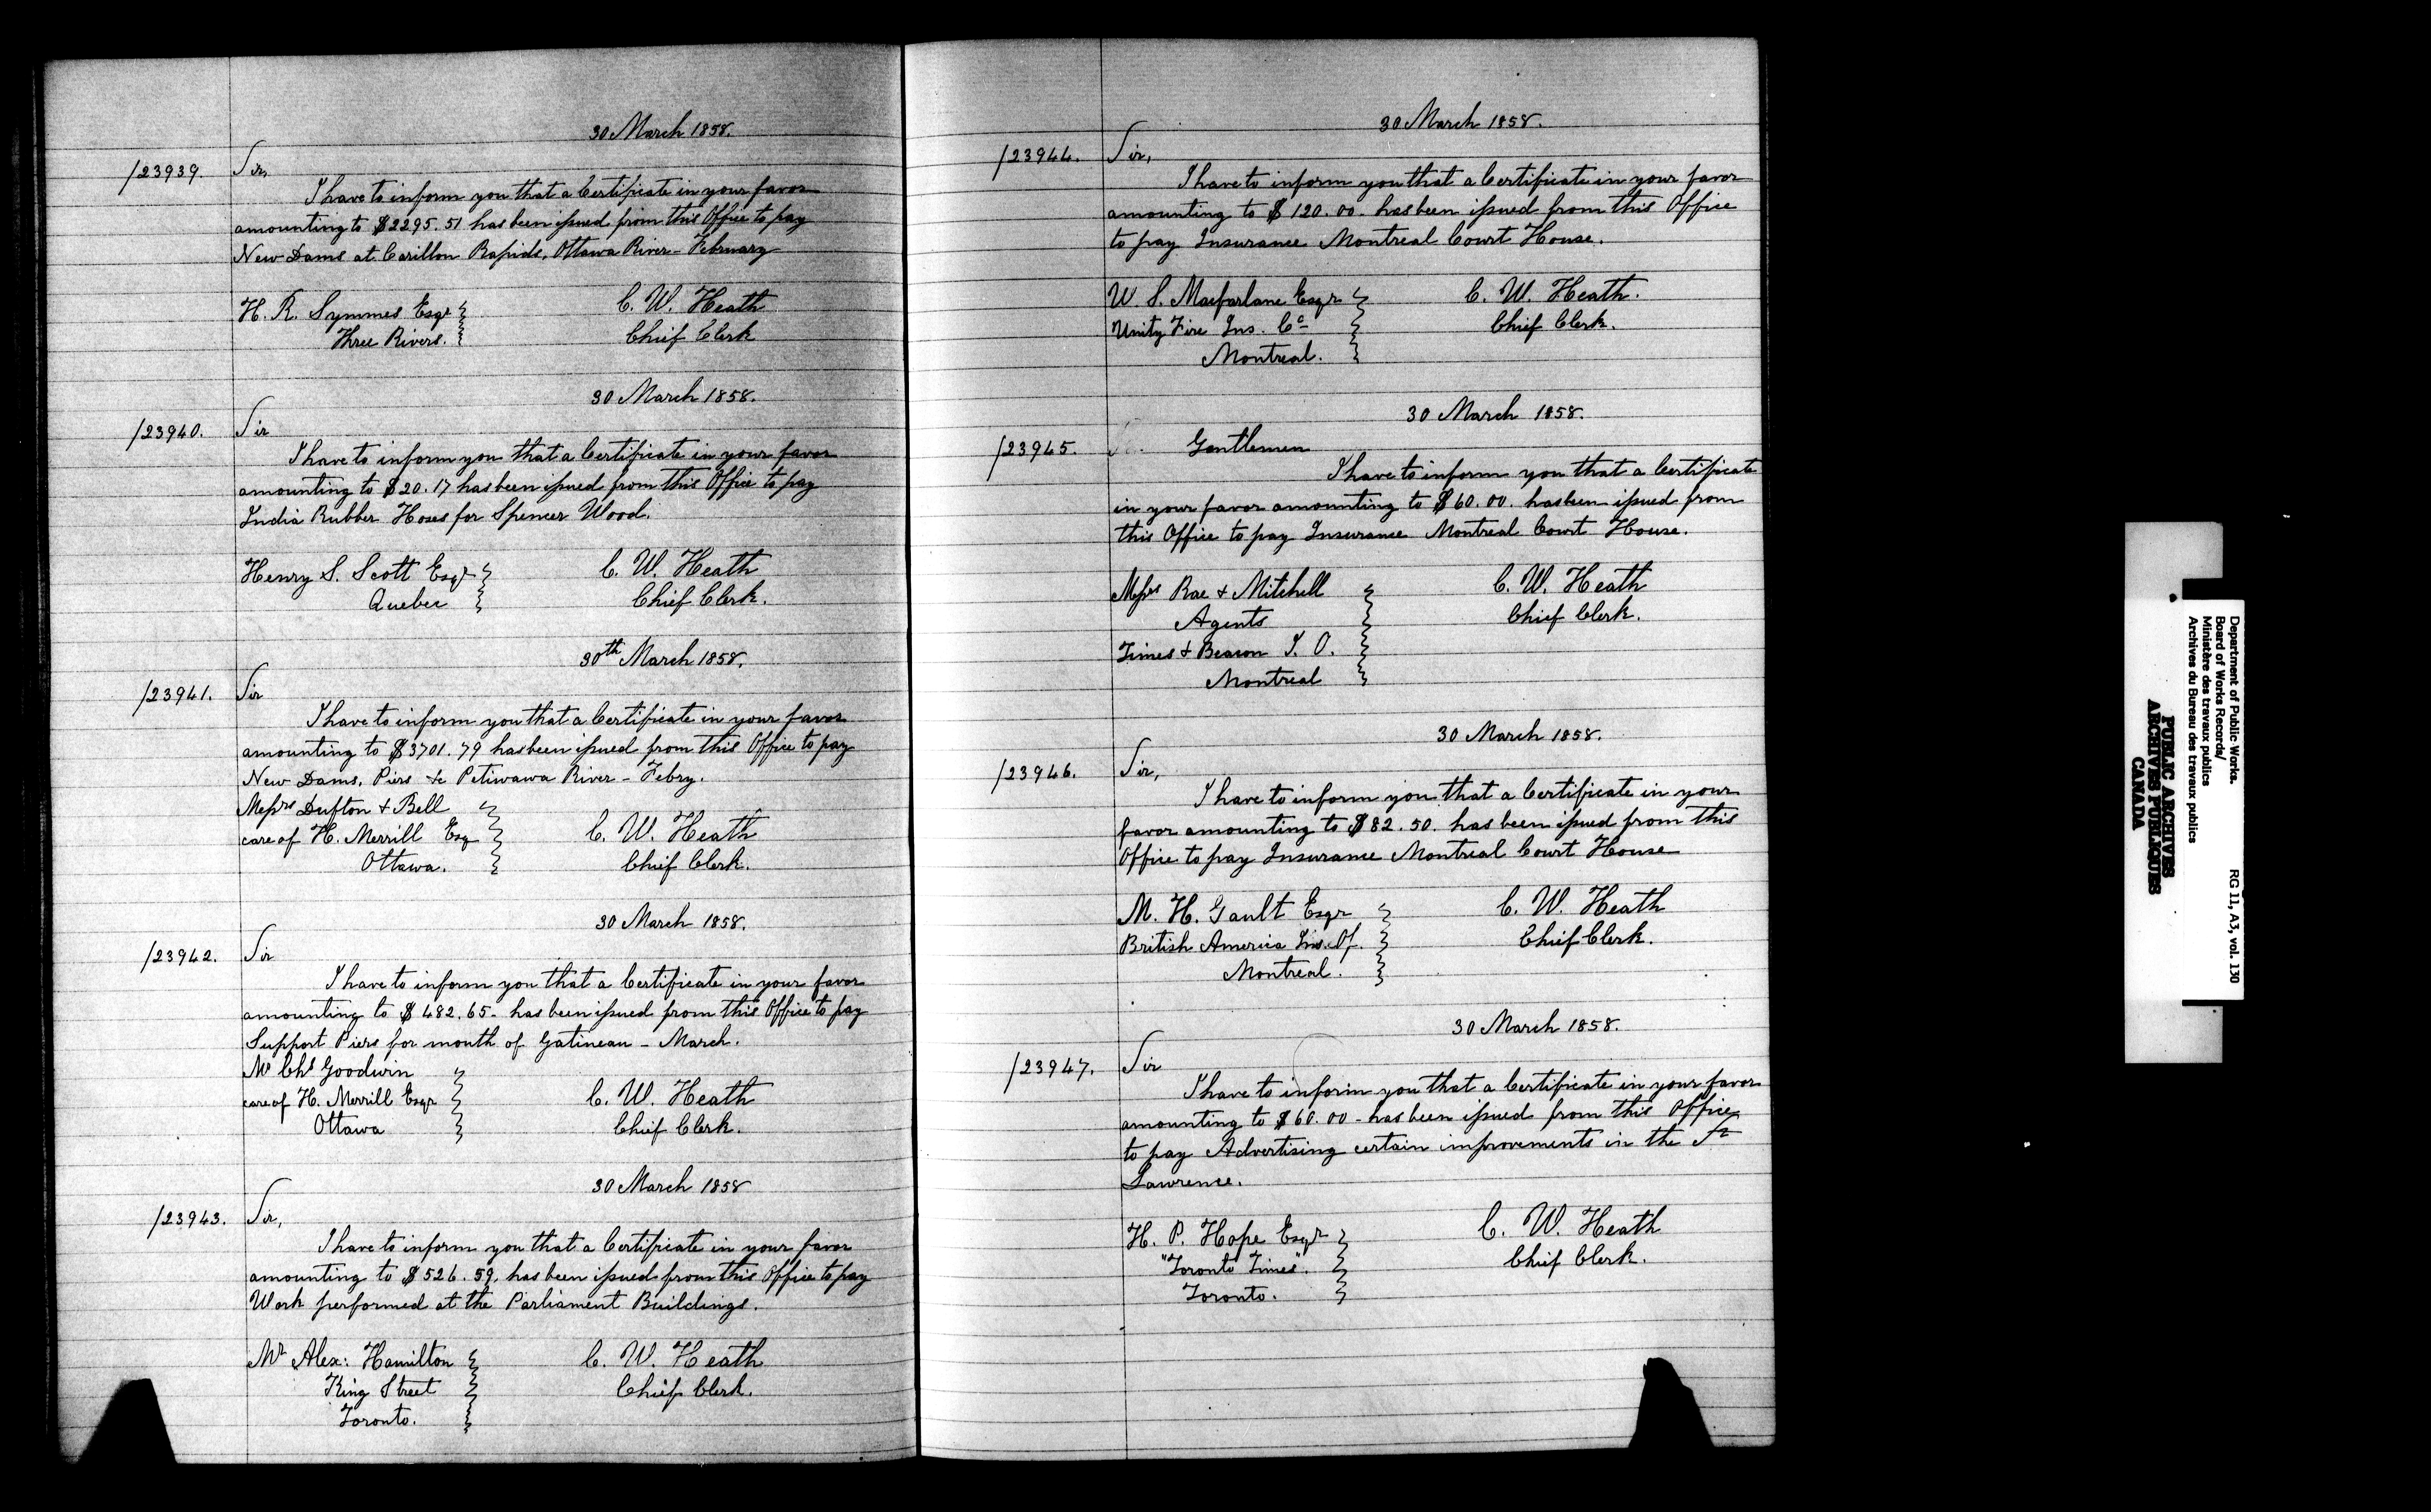 30 March 1858.
/23939. Sir,
I have to inform you that a Certificate in your favor
amounting to $2295.51 has been issued from this Office to pay
New Dams at Carillon Rapids, Ottawa River - February
H. R. Symmes Esqr C. W. Heath
Three Rivers. Chief Clerk
30 March 1858.
/23940. Sir
I have to inform you that a Certificate in your favor
amounting to $20.17 has been issued from this Office to pay
India Rubber Hoses for Spencer Wood.
Henry S. Scott Esqr C. W. Heath
Quebec Chief Clerk.
30th March 1858.
/23941. Sir
I have to inform you that a Certificate in your favor
amounting to $3701.79 has been issued from this Office to pay
New Dams, Piers &c Petiwawa River - Febry.
Messrs Dufton & Bell
care of H. Merrill Esq C. W. Heath
Ottawa. Chief Clerk.
30 March 1858.
/23942. Sir
I have to inform you that a Certificate in your favor
amounting to $482.65 - has been issued from this Office to pay
Support Piers for month of Gatineau - March.
Mr Chs Goodwin
care of H. Merrill Esqr C. W. Heath
Ottawa Chief Clerk.
30 March 1858
/23943. Sir,
I have to inform you that a Certificate in your favor
amounting to $526.59. has been issued from this Office to pay
Work performed at the Parliament Buildings.
Mr Alex: Hamilton C. W. Heath
King Street Chief Clerk.
Toronto.
30 March 1858.
/23944. Sir,
I have to inform you that a Certificate in your favor
amounting to $120.00. has been issued from this Office
to pay Insurance Montreal Court House.
W. S. Macfarlane Esqr C. W. Heath.
Unity Fire Ins. Co Chief Clerk.
Montreal.
30 March 1858.
/23945. Gentlemen
I have to inform you that a Certificate
in your favor amounting to $60.00. has been issued from
this Office to pay Insurance Montreal Court House.
Messrs Rae & Mitchell C. W. Heath
Agents Chief Clerk.
Times & Beacon I. O.
Montreal
30 March 1858.
/23946. Sir,
I have to inform you that a Certificate in your
favor amounting to $82.50. has been issued from this
Office to pay Insurance Montreal Court House
M. H. Gault Esqr C. W. Heath
British America Ins. Of. Chief Clerk.
Montreal.
30 March 1858.
/23947. Sir
I have to inform you that a Certificate in your favor
amounting to $60.00 - has been issued from this Office
to pay Advertising certain improvements in the St
Lawrence.
H. P. Hope Esqr C. W. Heath
"Toronto Times". Chief Clerk.
Toronto.
Department of Public Works.
Board of Works Records/
Ministère des travaux publics
Archives du Bureau des travaux publics
RG 11, A3, vol. 130
PUBLIC ARCHIVES
ARCHIVES PUBLIQUES
CANADA